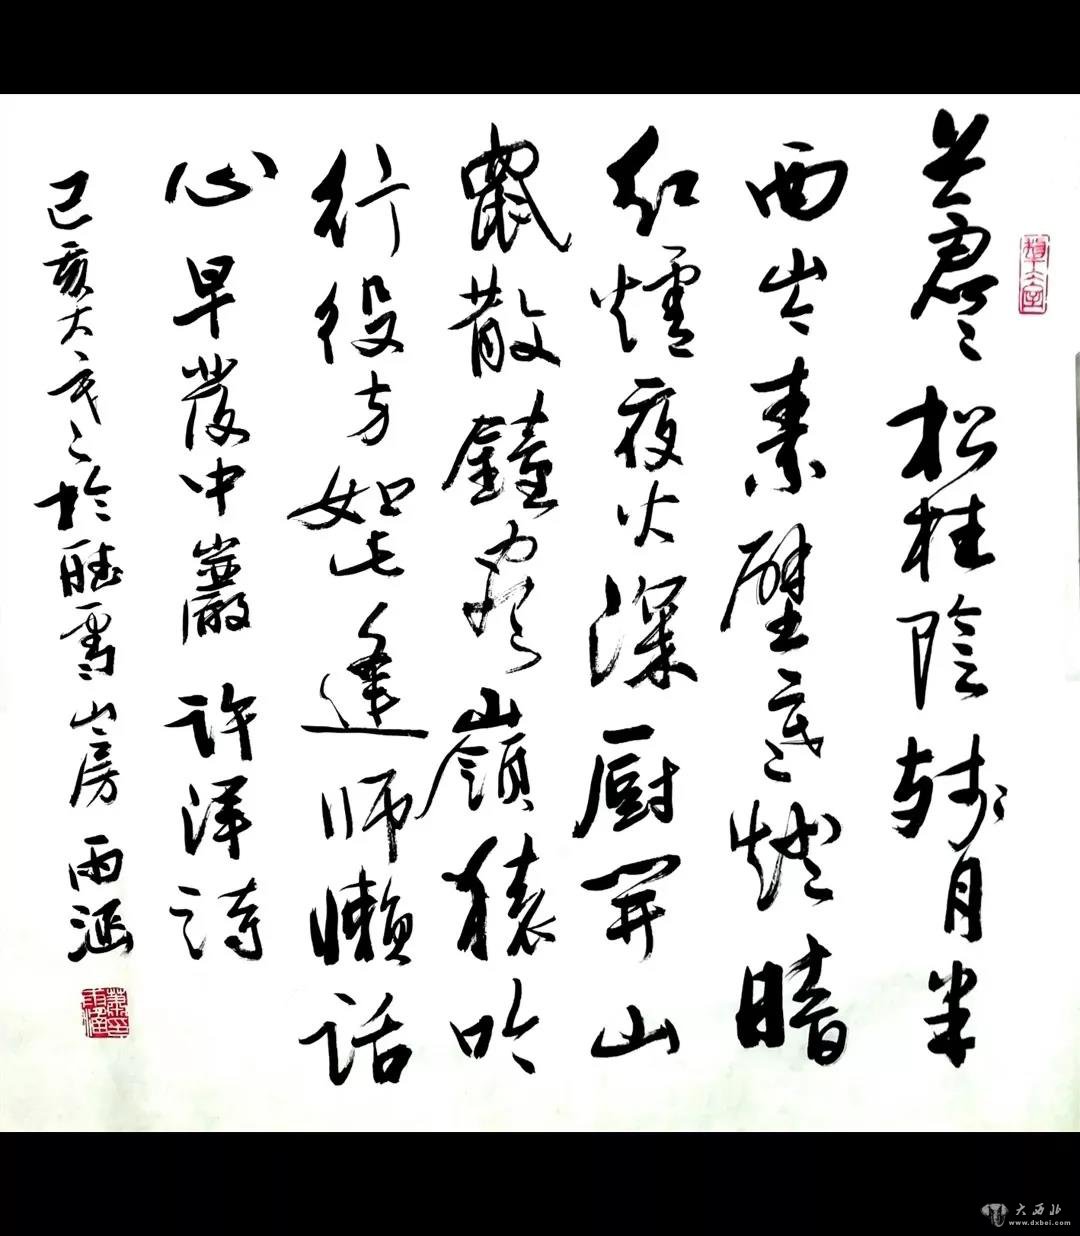 蒼蒼松桂陰残月半
西岑素壁寒燈暗
红爐夜火深厨開山
鼠散鐘盡嶺猿吟
行役方如此逢师懶话
心早發中巖 許渾詩
己亥大寒於聽雪山房 雨涵
大西北
www.dxbei.com